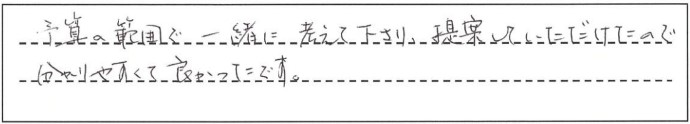 予算の範囲で一緒に考えて下さり、提案していただけたので
分かりやすくて良かったです。